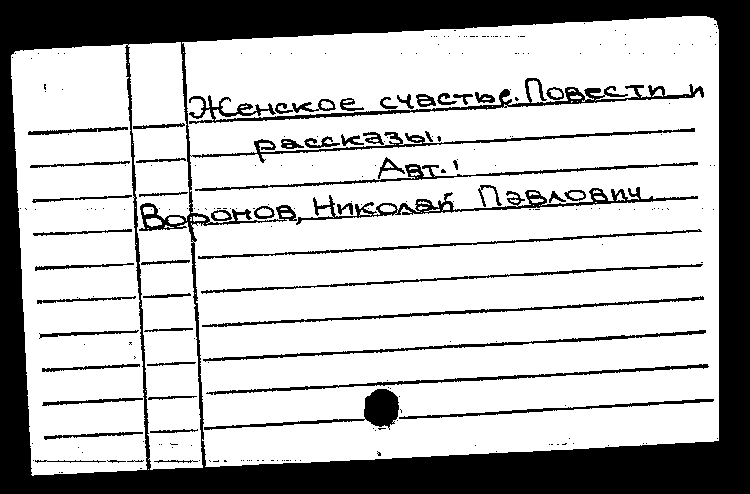 Женское счастье. Повести и
рассказы.
Авт.:
Воронов, Николай Павлович.